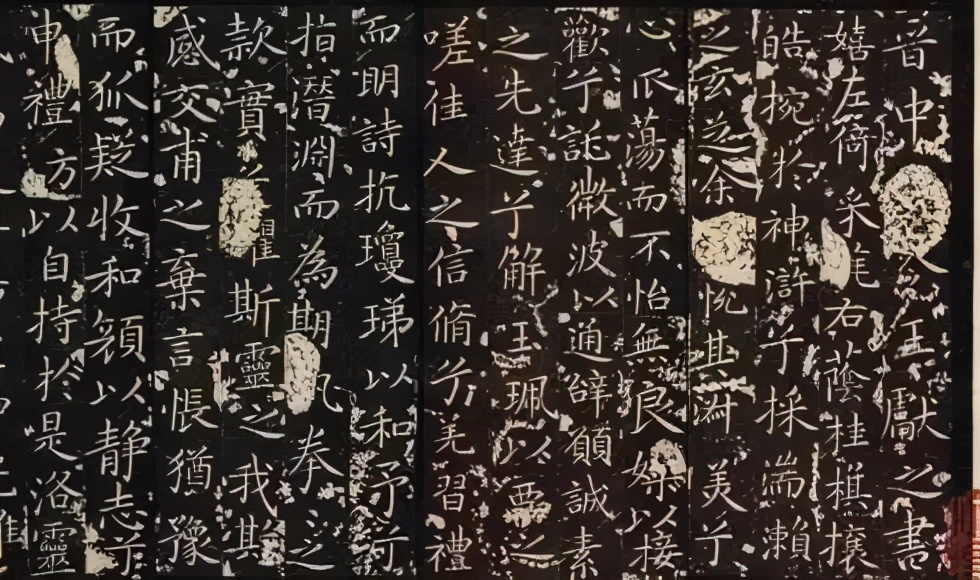 晋中令王獻之書
嬉左倚采旄右蔭桂棋攘
皓捥於神滸兮採湍瀨
之玄芝余悅其淑美兮
心爪蕩而不怡無良媒以接
歡兮託微波以通辭願誠素
之先達兮解玉珮以要之
嗟佳人之信脩兮羌習禮
而明詩抗瓊珶以和予兮
指潛淵而為期執拳之
款實兮懼斯靈之我斯
感交甫之棄言悵猶豫
而狐疑收和顏以静志兮
申禮方以自持於是洛靈